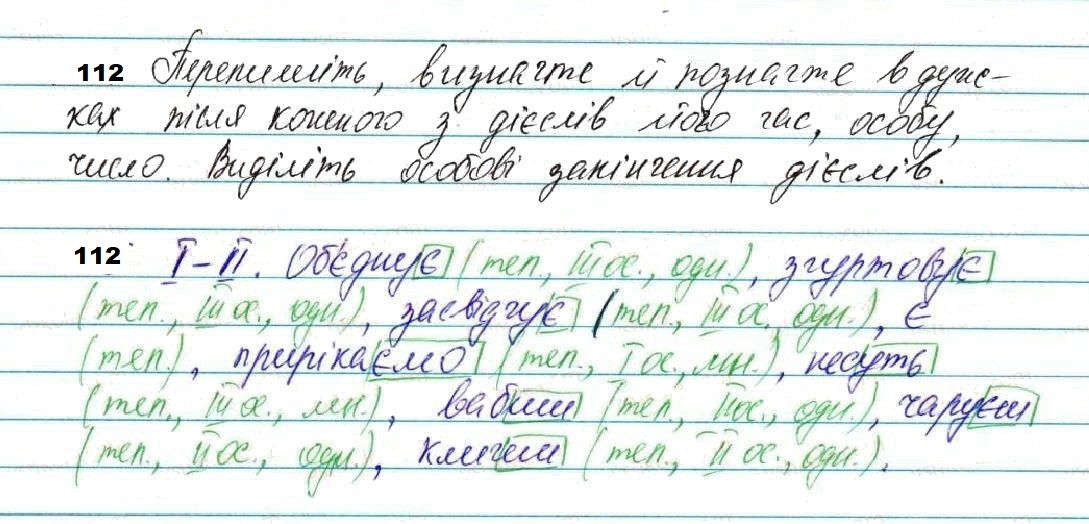 112 Перепишіть, визначте й позначте в дуж-
ках після кожного з дієслів його час, особу,
число. Виділіть особові закінчення дієслів.
112 І–ІІ. Об'єднує (теп., ІІІ ос., одн.), згуртовує
(теп., ІІІ ос., одн.), засвідчує (теп., ІІІ ос., одн.), є
(теп.), прирікаємо (теп., І ос., мн.), несуть
(теп., ІІІ ос., мн.), вабиш (теп., ІІ ос., одн.), чаруєш
(теп., ІІ ос., одн.), кличеш (теп., ІІ ос., одн.).